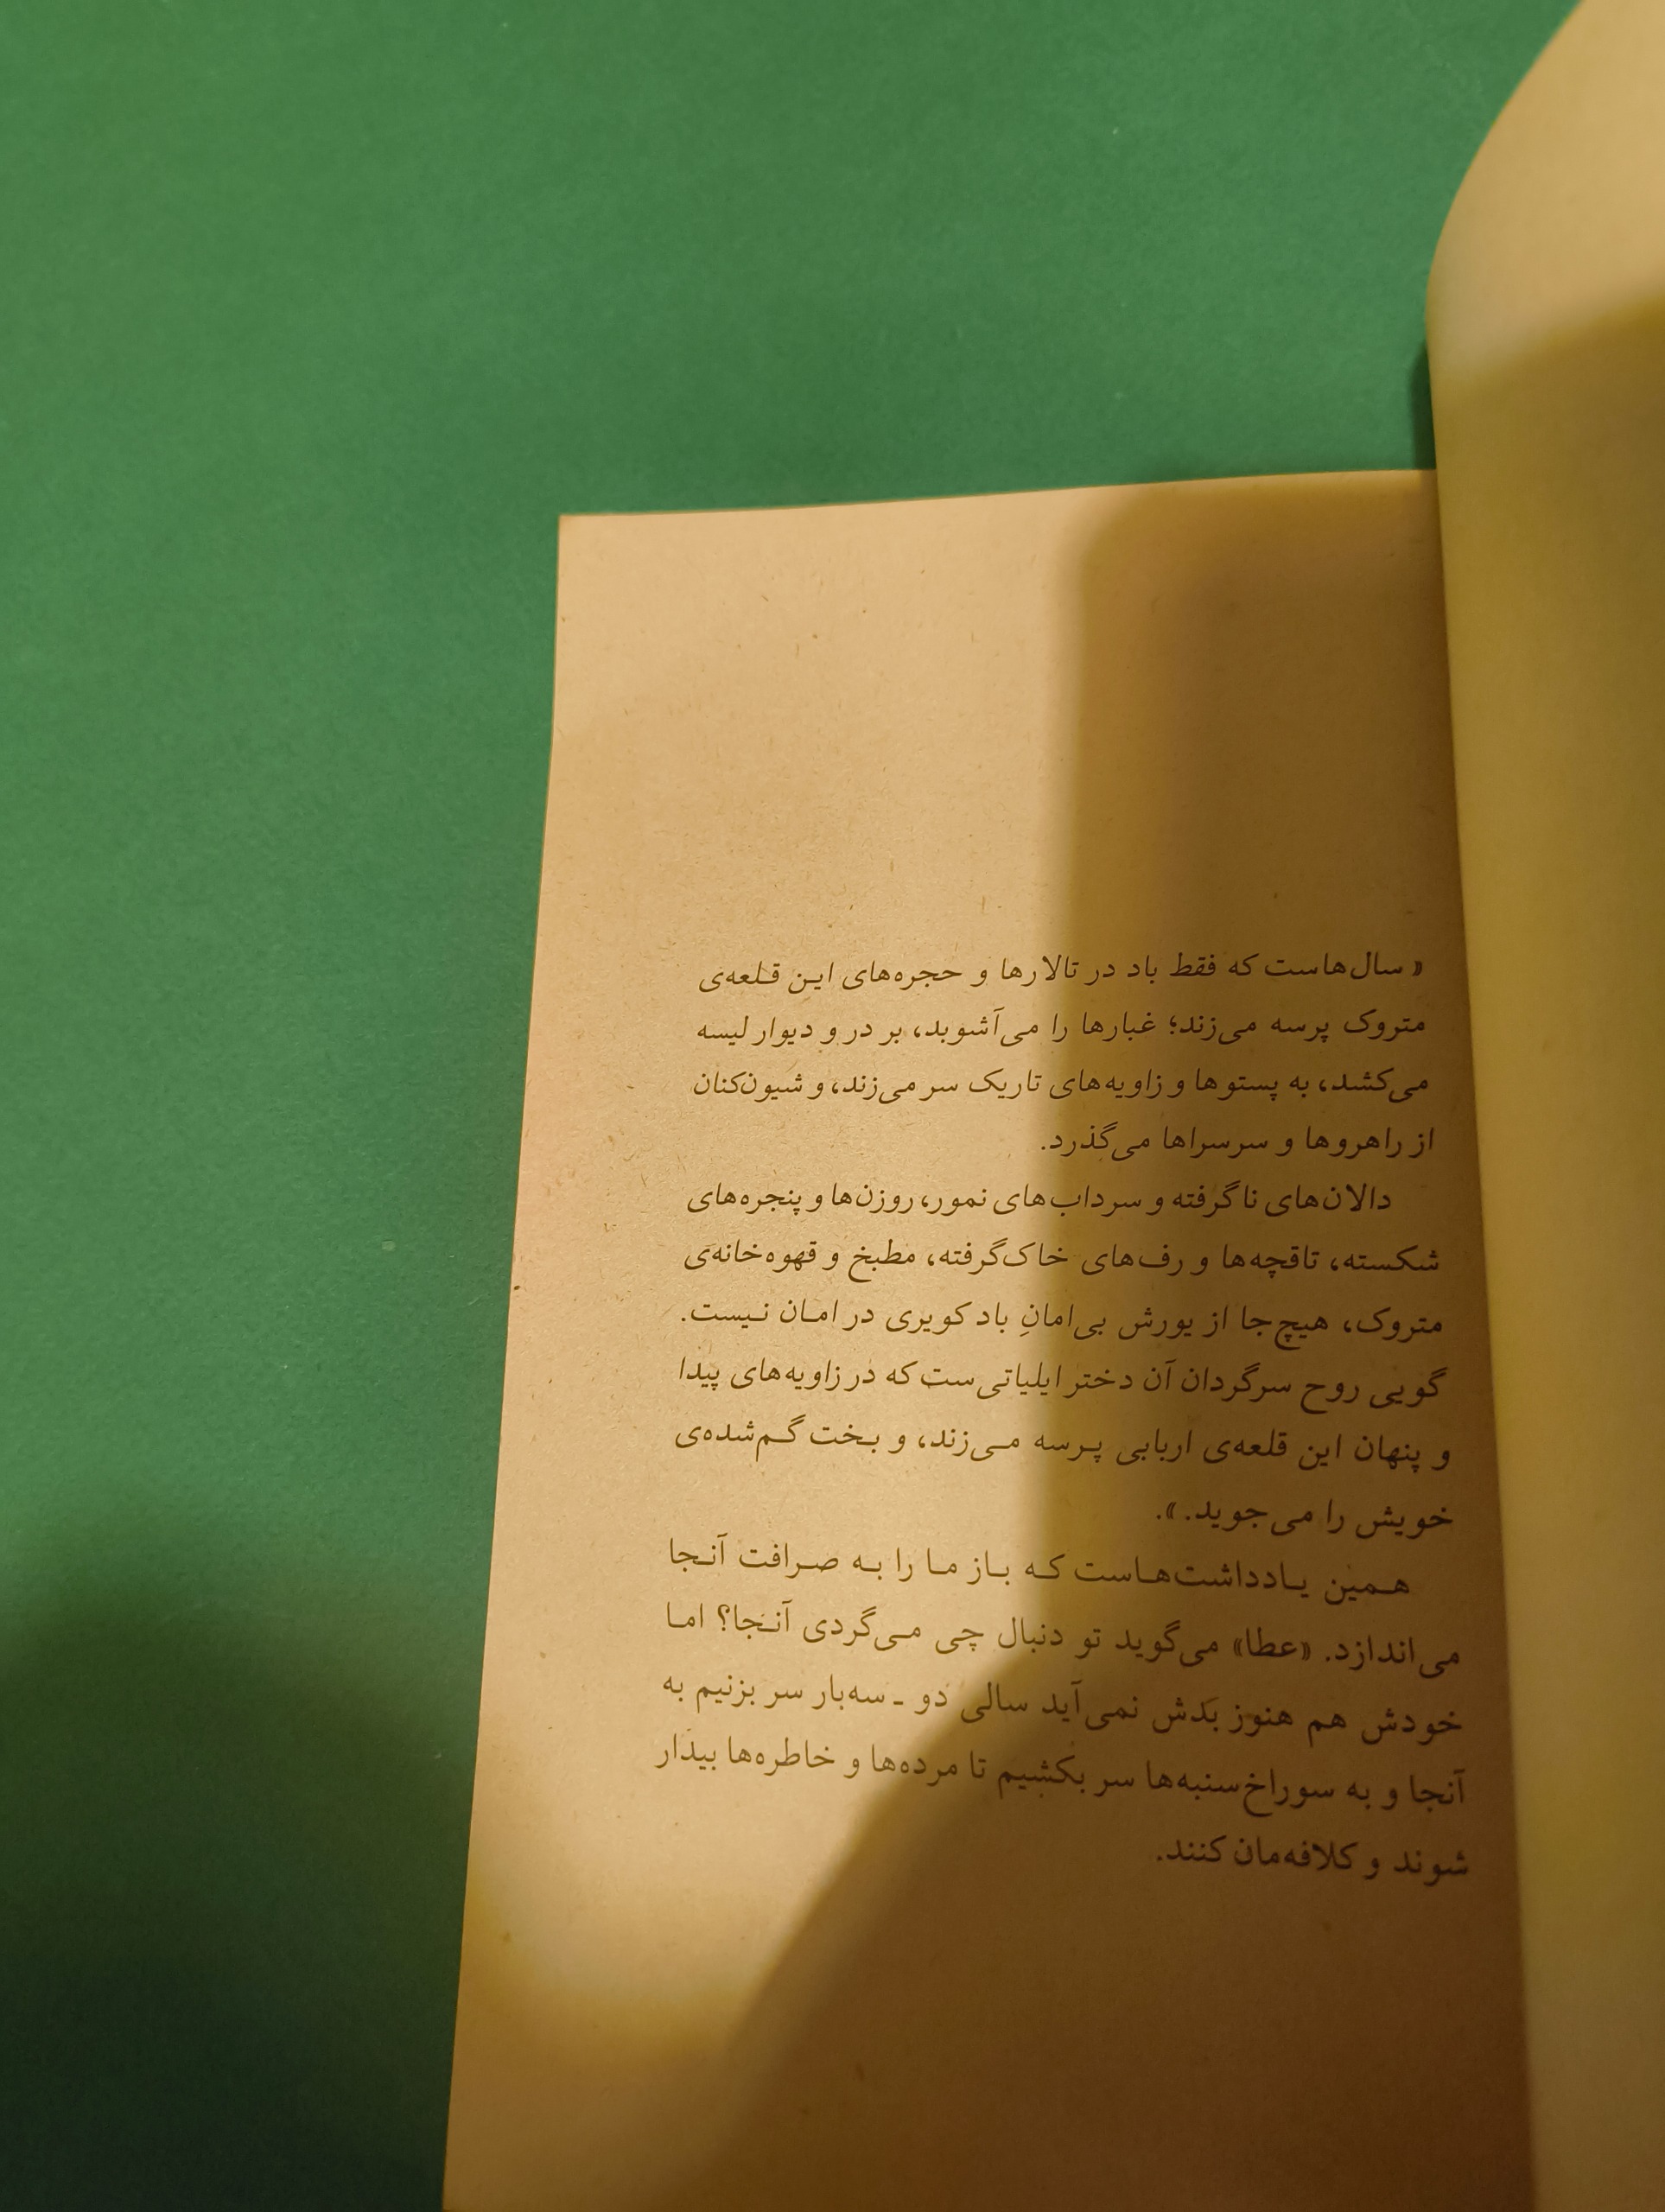 « سال‌هاست که فقط باد در تالارها و حجره‌های این قلعه‌ی
متروک پرسه می‌زند؛ غبارها را می‌آشوبد، بر در و دیوار لیسه
می‌کشد، به پستوها و زاویه‌های تاریک سر می‌زند، و شیون‌کنان
از راهروها و سرسراها می‌گذرد.
دالان‌های ناگرفته و سرداب‌های نمور، روزن‌ها و پنجره‌های
شکسته، تاقچه‌ها و رف‌های خاک‌گرفته، مطبخ و قهوه‌خانه‌ی
متروک، هیچ‌جا از یورش بی‌امانِ باد کویری در امان نیست.
گویی روح سرگردان آن دختر ایلیاتی‌ست که در زاویه‌های پیدا
و پنهان این قلعه‌ی اربابی پرسه می‌زند، و بخت گم‌شده‌ی
خویش را می‌جوید.».
همین یادداشت‌هاست که باز ما را به صرافت آنجا
می‌اندازد. «عطا» می‌گوید تو دنبال چی می‌گردی آنجا؟ اما
خودش هم هنوز بَدش نمی‌آید سالی دو ـ سه‌بار سر بزنیم به
آنجا و به سوراخ‌سنبه‌ها سر بکشیم تا مرده‌ها و خاطره‌ها بیدار
شوند و کلافه‌مان کنند.